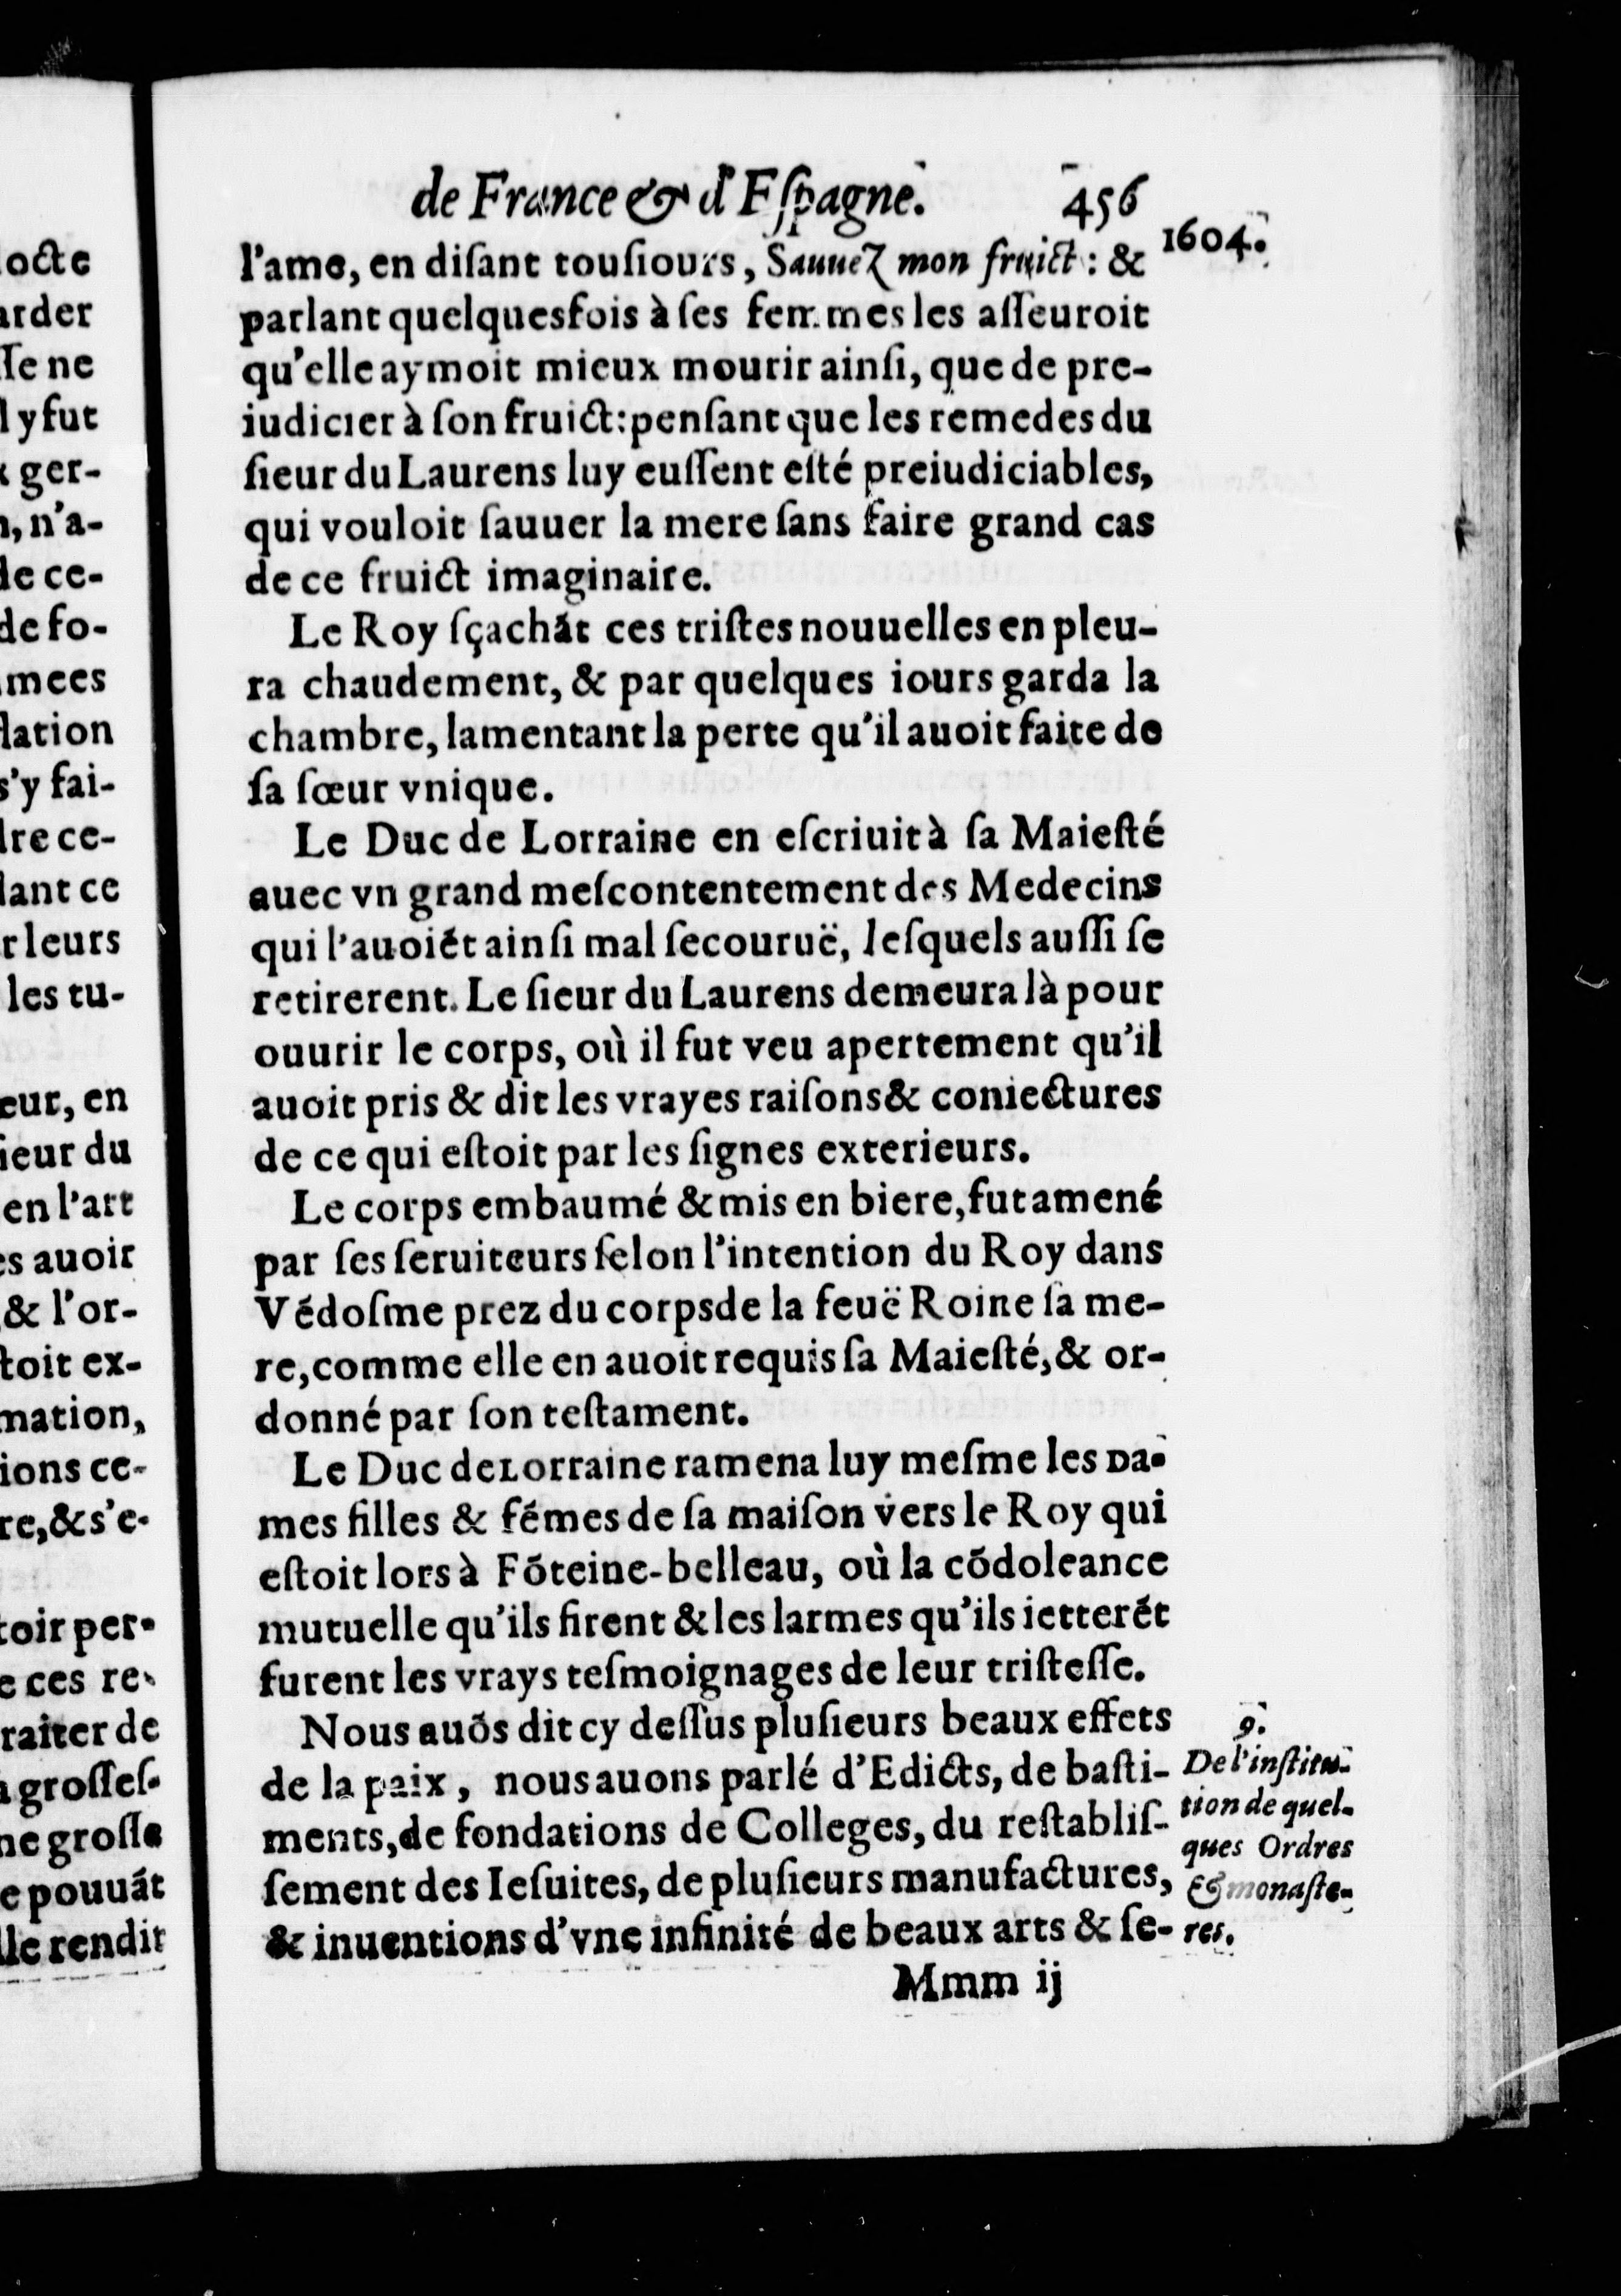 de France & d'Eſpagne. 456
1604.
l'ame, en diſant touſiours, Sauuez mon fruict: &
parlant quelquesfois à ſes femmes les aſſeuroit
qu'elle aymoit mieux mourir ainſi, que de pre-
iudicier à ſon fruict: penſant que les remedes du
ſieur du Laurens luy euſſent eſté preiudiciables,
qui vouloit ſauuer la mere ſans faire grand cas
de ce fruict imaginaire.
Le Roy ſçachãt ces triſtes nouuelles en pleu-
ra chaudement, & par quelques iours garda la
chambre, lamentant la perte qu'il auoit faite de
ſa ſœur vnique.
Le Duc de Lorraine en eſcriuit à ſa Maieſté
auec vn grand meſcontentement des Medecins
qui l'auoiẽt ainſi mal ſecouruë, leſquels auſſi ſe
retirerent. Le ſieur du Laurens demeura là pour
ouurir le corps, où il fut veu apertement qu'il
auoit pris & dit les vrayes raiſons & coniectures
de ce qui eſtoit par les ſignes exterieurs.
Le corps embaumé & mis en biere, fut amené
par ſes ſeruiteurs ſelon l'intention du Roy dans
Vẽdoſme prez du corps de la feuë Roine ſa me-
re, comme elle en auoit requis ſa Maieſté, & or-
donné par ſon teſtament.
Le Duc de Lorraine ramena luy meſme les Da-
mes filles & fẽmes de ſa maiſon vers le Roy qui
eſtoit lors à Fõteine-belleau, où la cõdoleance
mutuelle qu'ils firent & les larmes qu'ils ietterẽt
furent les vrays teſmoignages de leur triſteſſe.
Nous auõs dit cy deſſus pluſieurs beaux effets
de la paix, nous auons parlé d'Edicts, de baſti-
ments, de fondations de Colleges, du reſtabliſ-
ſement des Ieſuites, de pluſieurs manufactures,
& inuentions d'vne infinité de beaux arts & ſe-
9.
De l'inſtitu-
tion de quel-
ques Ordres
& monaſte-
res.
Mmm ij